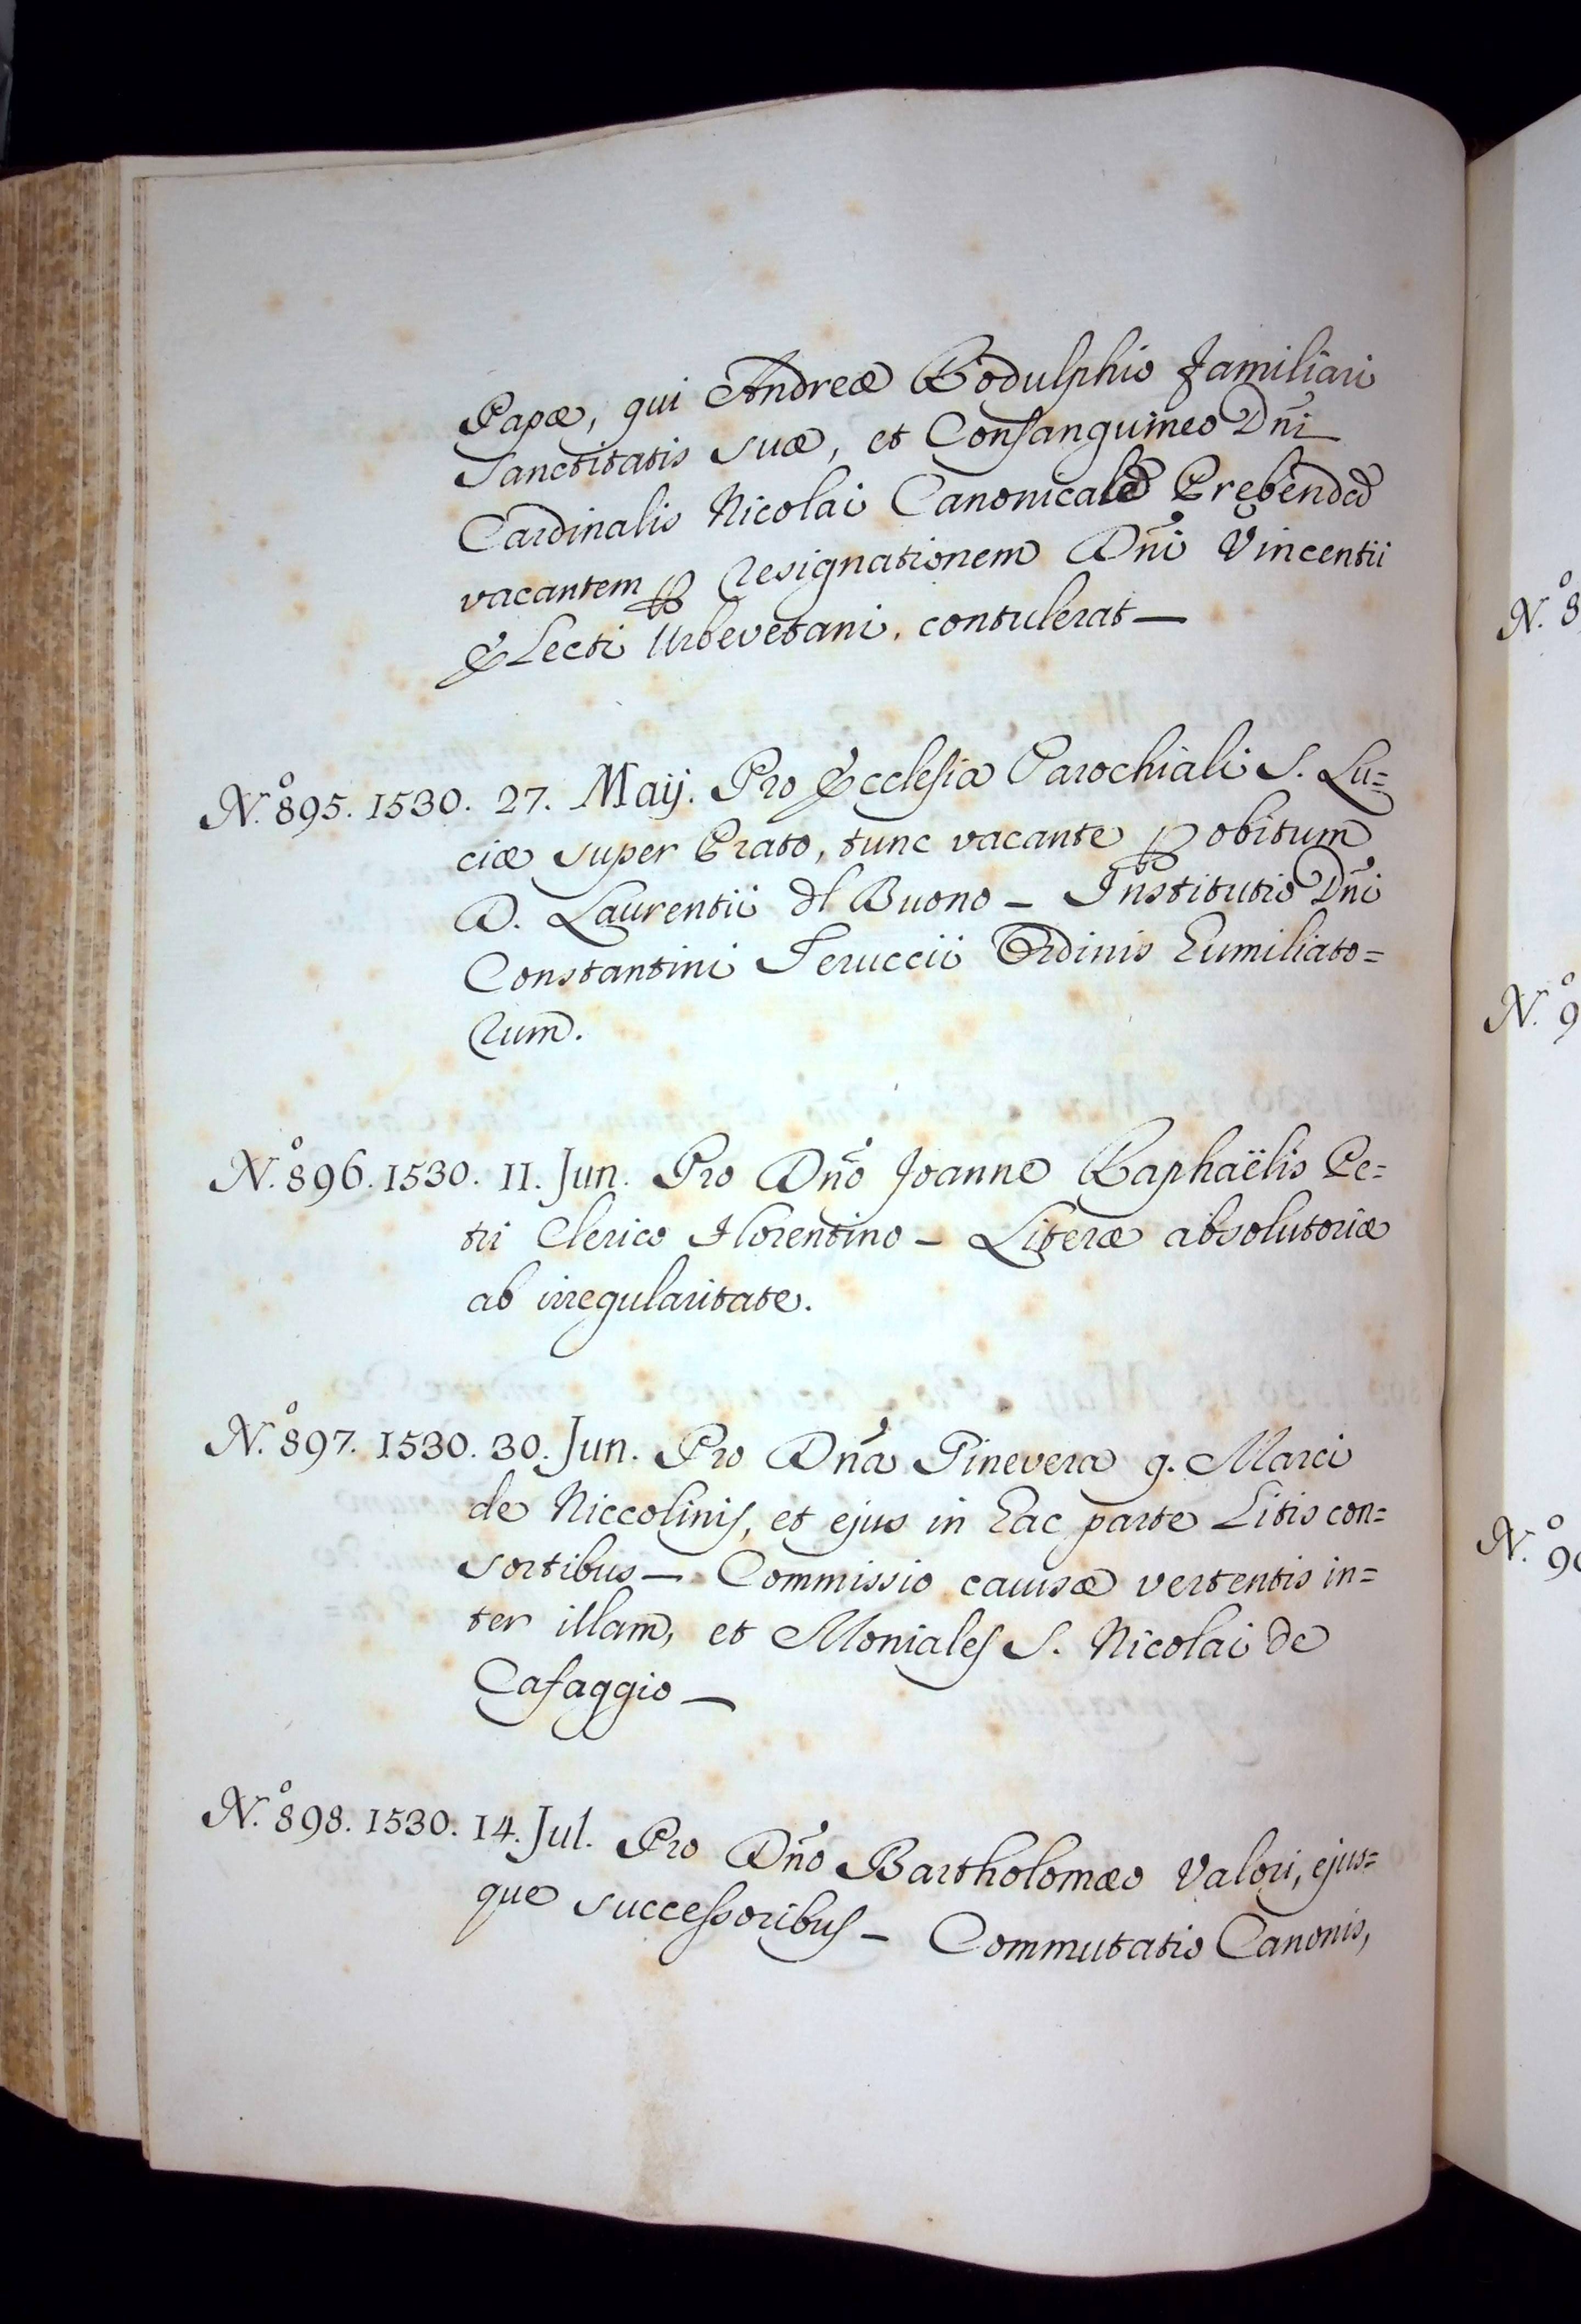 Papæ, qui Andreæ Rodulphio familiari
Sanctitatis suæ, et Consanguineo Dñi
Cardinalis Nicolai Canonicalẽ Prębendã
vacantem ꝑ resignationem Dñi Vincentii
Electi Urbevetani, contulerat —
N.º 895. 1530. 27. Maij. Pro Ecclesia Parochiali S. Lu=
ciæ super Prato, tunc vacante ꝑ obitum
D. Laurentii dl Buono — Institutio Dñi
Constantini Feruccii Ordinis Humiliato=
rum.
N.º 896. 1530. 11. Jun. Pro Dño Joanne Raphaëlis Pe=
tri Clerico Florentino — Literæ absolutoriæ
ab irregularitate.
N.º 897. 1530. 30. Jun. Pro Dña Ginevera q. Marci
de Niccolinis, et ejus in hac parte Litis con=
sortibus — Commissio causæ vertentis in=
ter illam, et Moniales S. Nicolai de
Cafaggio —
N.º 898. 1530. 14. Jul. Pro Dño Bartholomæo Valori, ejus=
que successoribus — Commutatio Canonis,
N.º 8
N.º 9
N.º 90